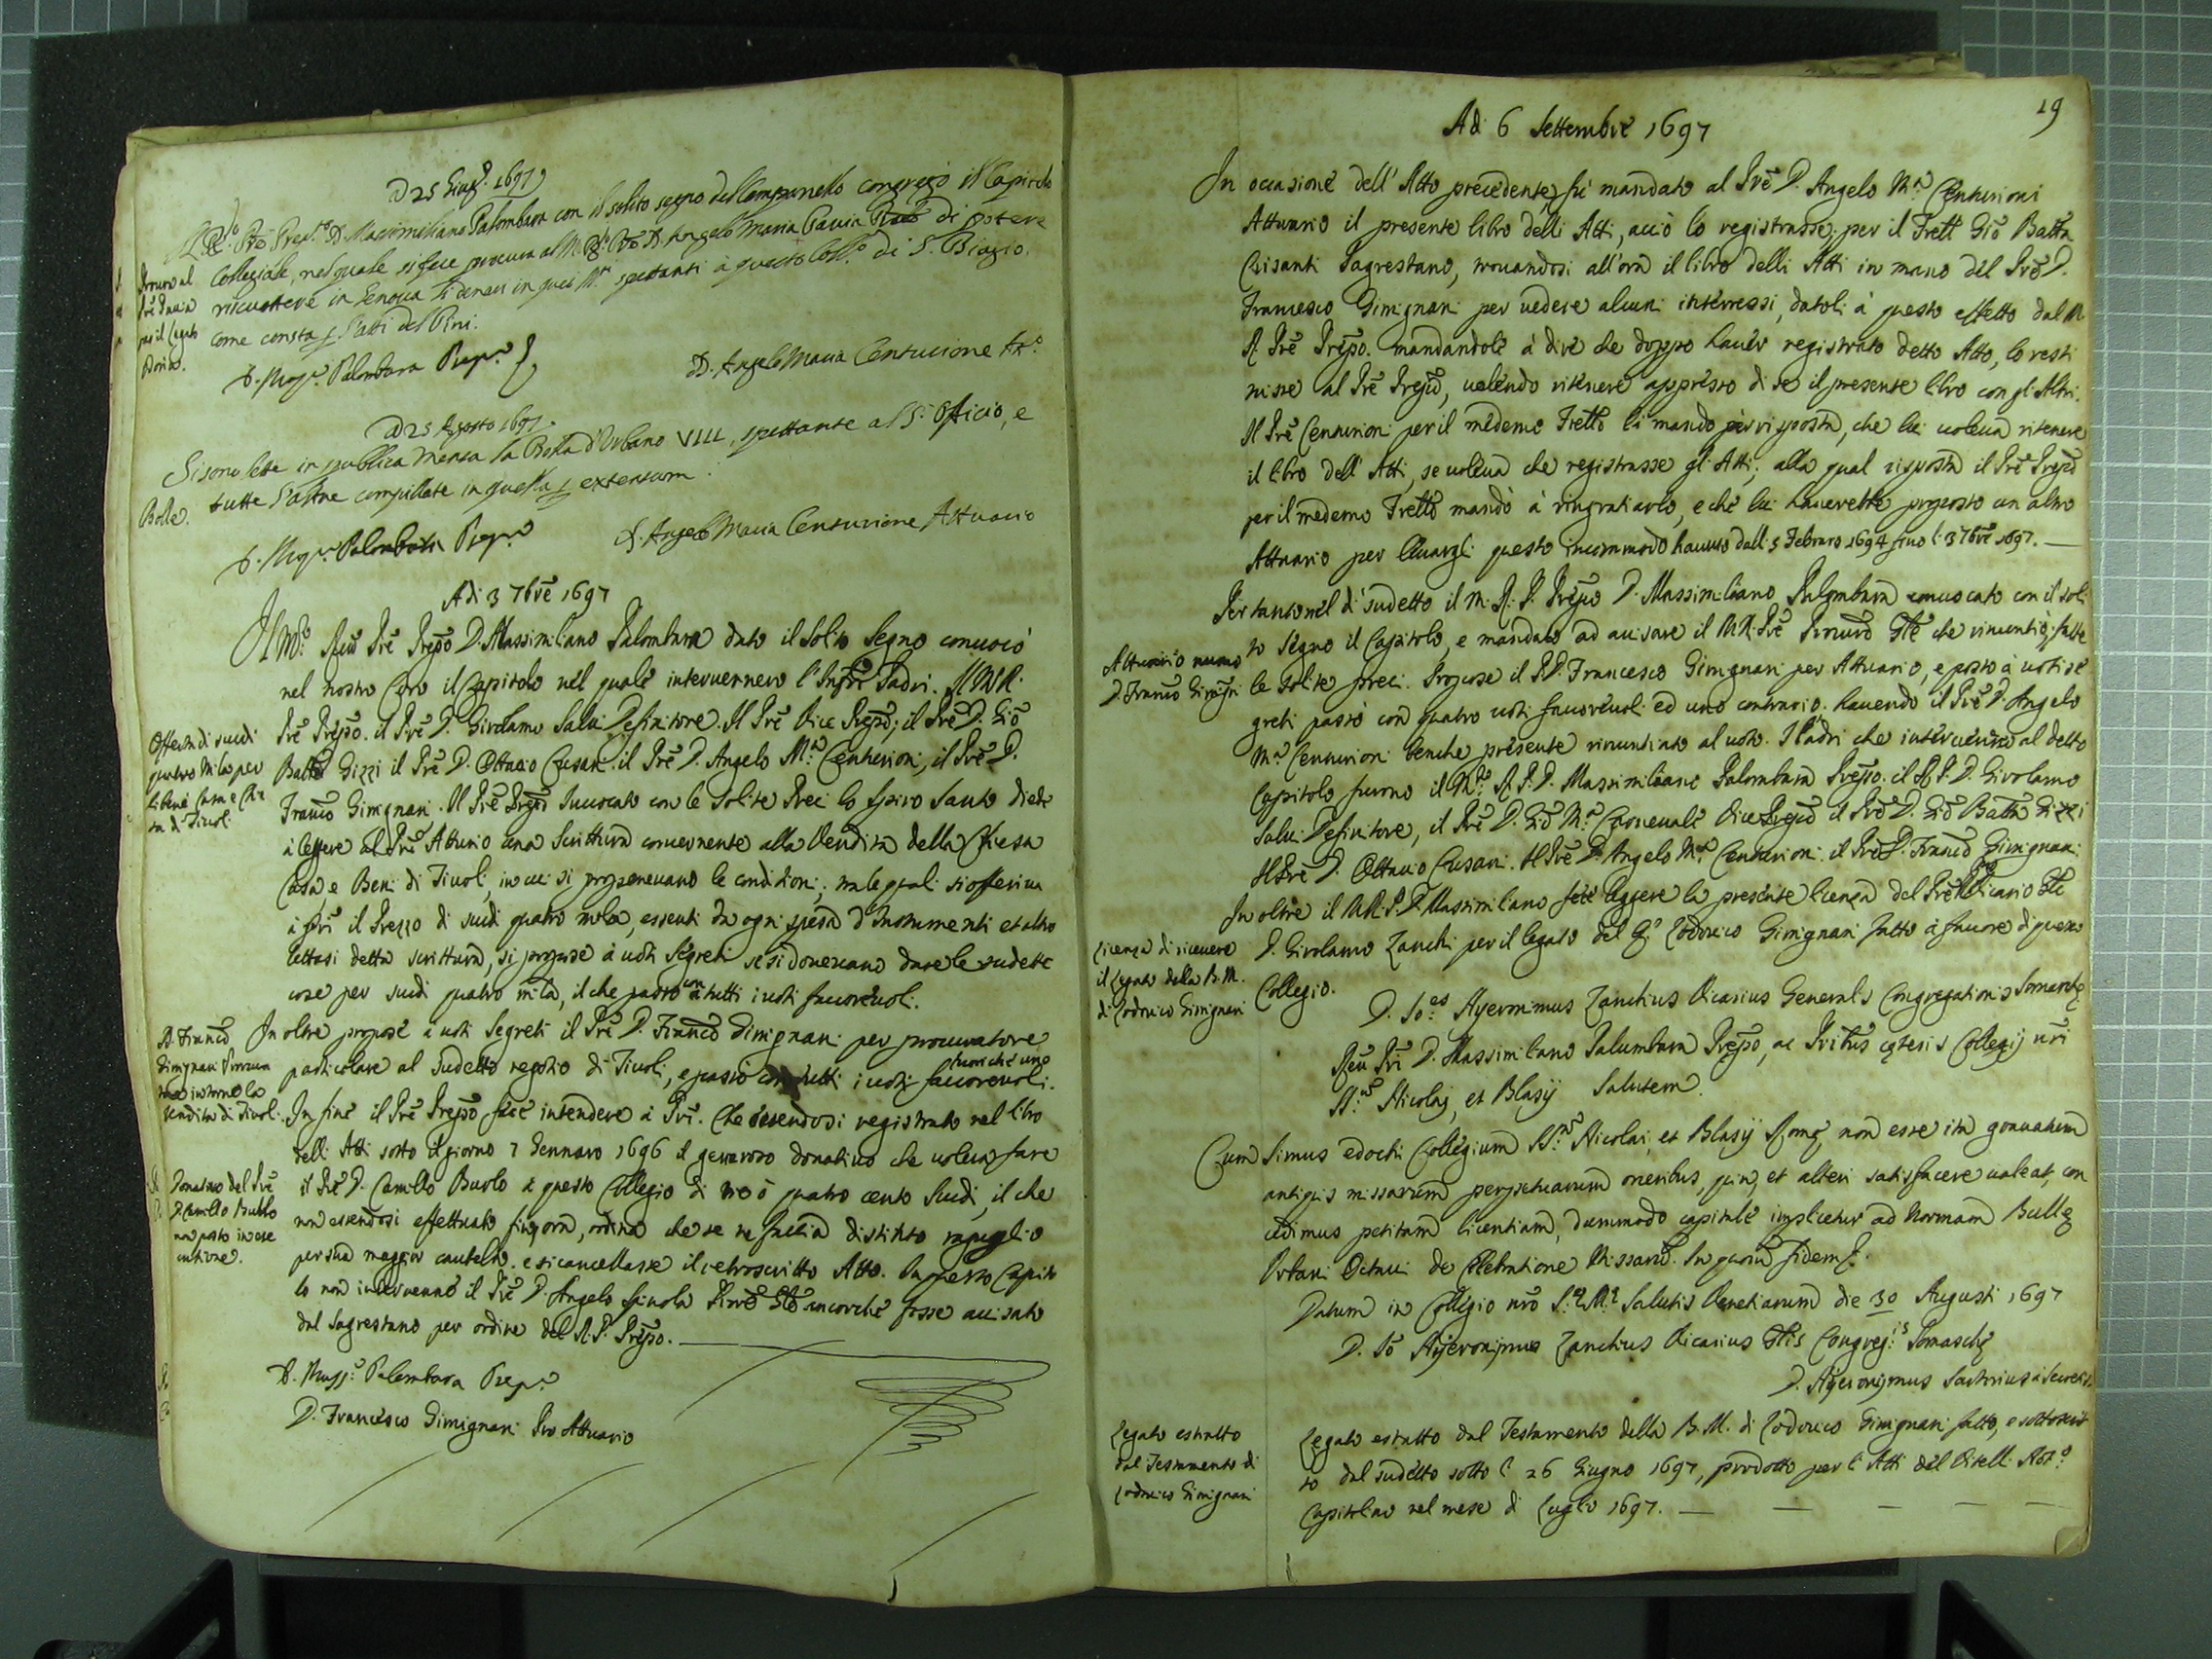 D 25 Giug.o 1697
Il P. Prẽ Prep.to D. Massimiliano Palombara con il solito segno del Campanello congregò il Capitolo
Collegiale, nel quale si fece procura al M. R. Prẽ D. Angelo Maria Pavia di potere
riscuotere in Genova li denari in quei spettanti à questo Coll.o di S. Biagio.
come consta p. l'atti del Pini.
Procura al
Prẽ Pavia
per il Legato
Doria.
D. Mass.o Palombara Prep.to
D. Angelo Maria Centurione Att.o
A di 25 Agosto 1697.
Si sono lette in publica mensa la Bolla d'Urbano VIII, spettante al S. Officio, e
tutte l'altre compillate in quella p extensum.
Bolle.
D. Mass.o Palombara Prep.to
D. Angelo Maria Centurione Attuario
Adi 3 7bre 1697
Il M.o Reu Prẽ Prepo D. Massimiliano Palombara dato il solito segno conuocò
nel nostro Coro il Capitolo nel quale interuennero l'Infrĩ Padri. Il M.R.
Prẽ Prepo. il Prẽ D. Girolamo Salui Definitore. Il Prẽ Vice Prepo; il Prẽ D. Giõ
Batta Gizzi il Prẽ D. Ottauio Cusani. il Prẽ D. Angelo M.a Centurioni, il Prẽ D.
Franco Gimignani. Il Prẽ Prepo Inuocato con le solite Preci lo Spirito Santo diede
à leggere al Prẽ Attuario una Scrittura concernente alla Vendita della Chiesa
Casa, e Beni di Tiuoli, in cui si proponeuano le conditioni; nale quali si offeriua
à Prĩ il Prezzo di scudi quatro mila, essenti da ogni spesa d'Instrumenti et altro
lettasi detta scrittura, si propose à uoti segreti se si doueuano dare le sudette
cose per scudi quatro mila, il che passò con tutti i uoti fauoreuoli.
Offerta di scudi
quatro mila per
li beni Casa e Chie
sa di Tiuoli
In oltre propose à uoti segreti il Prẽ D. Franco Gimignani per procuratore
particolare al sudetto negotio di Tiuoli, e passò con tutti i uoti fuor che uno fauoreuoli.
D. Franco
Gimignani Procura
tore intorno la
uendita di Tiuoli.
In fine il Prẽ Prepo fece intendere à Prĩ. Che essendosi registrato nel libro
delli Atti sotto il giorno 7 Gennaro 1696 il generoso donatiuo che uoleua fare
il Prẽ D. Camillo Buolo à questo Collegio di tre ò quatro cento Scudi, il che
non essendosi effettuato fin'gora, ordina che se ne faccia distinto raguaglio
per sua maggior cautela. e si cancellasse il retroscritto Atto. In questo Capito
lo non interuenne il Prẽ D. Angelo Spinola Procre Gle ancorche fosse auisato
dal Sagrestano per ordine del R. P. Prepo.
Donatiuo del Prẽ
D. Camillo Buolo
non posto in ese
cutione.
D. Mass.o Palombara Prep.to
D. Francesco Gimignani Pro Attuario
19
Adi 6 Settembre 1697
In occasione dell'Atto precedente, fu mandato al Prẽ D. Angelo M.a Centurioni
Attuario il presente libro delli Atti, acciò lo registrasse; per il Frett Giõ Batta
Crisanti Sagrestano, trouandosi all'ora il libro delli Atti in mano del Prẽ D.
Francesco Gimignani per uedere alcuni interressi, datoli à questo effetto dal M.
R. Prẽ Prepo. mandandole à dire che doppo hauer registrato detto Atto, lo resti
tuisse al Prẽ Prepo, uolendo ritenere appresso di se il presente libro con gl'Altri.
Il Prẽ Centurioni per il medemo Fretto li mandò per risposta, che lui uoleua ritenere
il libro dell'Atti, se uoleua che registrasse gl'Atti; alla qual risposta il Prẽ Prepo
per il medemo Fretto mandò à ringratiarlo, e che lui hauerebbe proposto un altro
Attuario per leuargli questo incommodo hauuto dalli 5 Febraro 1694 fino li 3 7bre 1697.
Per tanto nel dì sudetto il M. R. P. Prepo D. Massimiliano Palombara conuocato con il soli
to segno il Capitolo, e mandato ad auisare il M.R. Prẽ Procurẽ Gle che rinuntiò; fatte
le solite preci. Propose il P.D. Francesco Gimignani per Attuario, e posto à uoti se
greti passò con quatro uoti fauoreuoli ed uno contrario. hauendo il Prẽ D. Angelo
M.a Centurioni benche presente rinuntiato al uoto. I Padri che interuennero al detto
Capitolo furono il M.o R. P. D. Massimiliano Palombara Prepo. il R. P. D. Girolamo
Salui Definitore, il Prẽ D. Giõ M.a Carneuale Vice Prepo il Prẽ D. Giõ Batta Gizzi
Il Prẽ D. Ottauio Cusani. Il Prẽ D. Angelo M.a Centurioni. il Prẽ D. Franco Gimignani.
Attuario nuouo
D. Franco Gimigni
In oltre il M.R. P. D. Massimiliano fece leggere la presente licenza del Prẽ Vicario Gle
D. Girolamo Zanchi per il legato del Q. Lodouico Gimignani fatto à fauore di questo
Collegio.
Licenza di riceuere
il Legato della B.M.
di Lodouico Gimignani
D. Jo:es Hyeronimus Zanchius Vicarius Generals Congregationis Somaschę
Reu Pri D. Massimiliano Palumbara Prepo, ac Pribus cęteris Collegij nri
SS.rum Nicolaj, et Blasij Salutem.
Cum simus edocti Collegium SS.rum Nicolai, et Blasij Romę non esse ita grauatum
antiquis missarum perpetuarum oneribus, quin, et alteri satisfacere ualeat, con
cedimus petitam licentiam, dummodo capitale implicetur ad Normam Bullę
Vrbani Octaui de Celebratione Missarũ. In quorũ fidem &.
Datum in Collegio nrõ S.ę M.ę Salutis Venetiarum die 30 Augusti 1697
D. Jõ Hyeronimus Zanchius Vicarius Glis Congreg.is Somaschę
D. Hyeronymus Sartorius à Secretis
Legato estratto
dal Testamento di
Lodouico Gimignani
Legato estratto dal Testamento della B.M. di Lodouico Gimignani fatto, e sottoscrit
to dal sudetto sotto li 26 Giugno 1697, prodotto per li Atti del Vitelli Not.o
Capitolino nel mese di Luglio 1697.